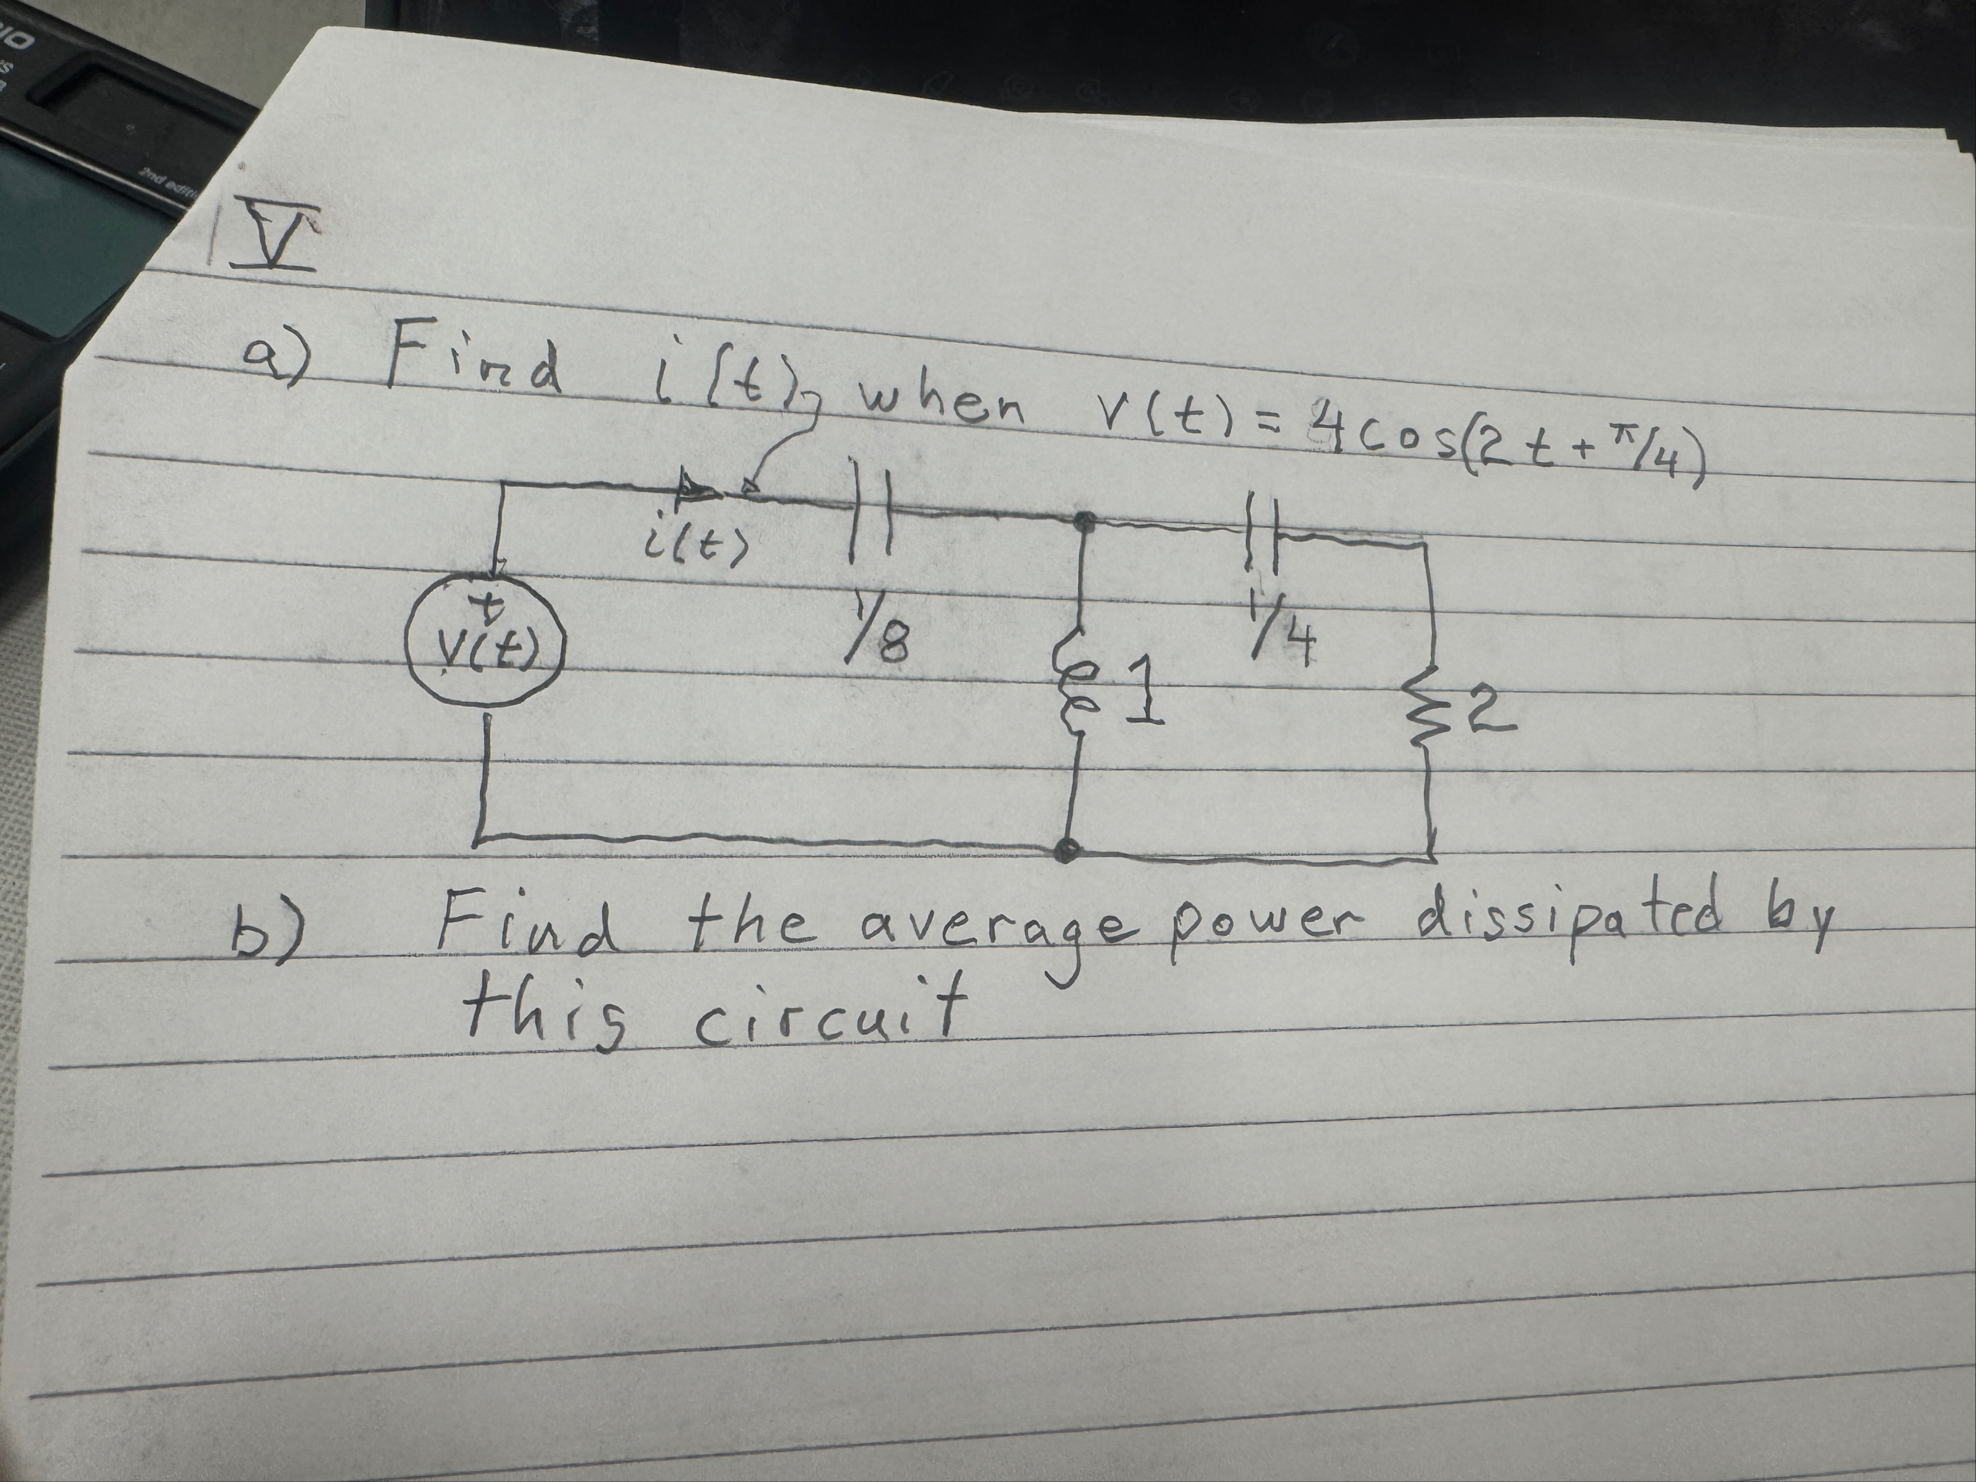 V
a) Find i(t), when v(t) = 4cos(2t + π/4)
i(t)
+
V(t)
1/8
1
1/4
2
b) Find the average power dissipated by
this circuit
2nd editi